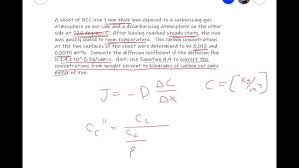 A sheet of BCC iron 1 mm thick was exposed to a carburising gas
atmosphere on one side and a decarburising atmosphere on the other
side at 725 degree C. After having reached steady state, the iron
was quickly cooled to room temperature. The carbon concentrations
at the two surfaces of the sheet were determined to be 0.012 and
0.0075 wt%. Compute the diffusion coefficient if the diffusion flux
1.4 x 10^-8 kg/sqm-s. Hint: Use Equation 4.9 to convert the
concentrations from weight percent to kilograms of carbon per cubic
meter of iron.
J = -D ΔC/ΔX
C = [kg/m³]
C_c" = C_c / C_c/ρ